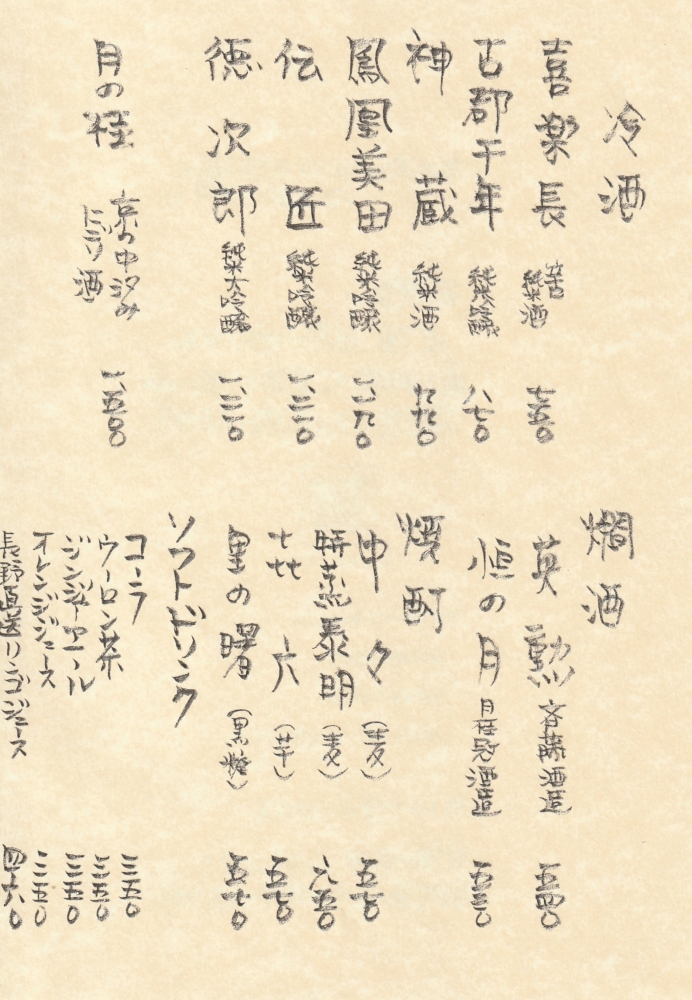 冷酒
喜楽長 辛口 純米酒 七五〇
古都千年 純米吟醸 八七〇
神蔵 純米酒 九九〇
鳳凰美田 純米吟醸 一、一九〇
伝匠 純米吟醸
徳次郎 純米大吟醸
月の桂 京の中汲み にごり酒 一、五〇〇
燗酒
英勲 斉藤酒造 五四〇
恒の月 月桂冠酒造 五三〇
焼酎
中々（麦） 五七〇
特蒸泰明（麦） 六五〇
㐂六（芋） 五七〇
里の曙（黒糖） 五七〇
ソフトドリンク
コーラ 三五〇
ウーロン茶 三五〇
ジンジャーエール 三五〇
オレンジジュース 三五〇
長野直送リンゴジュース 四六〇